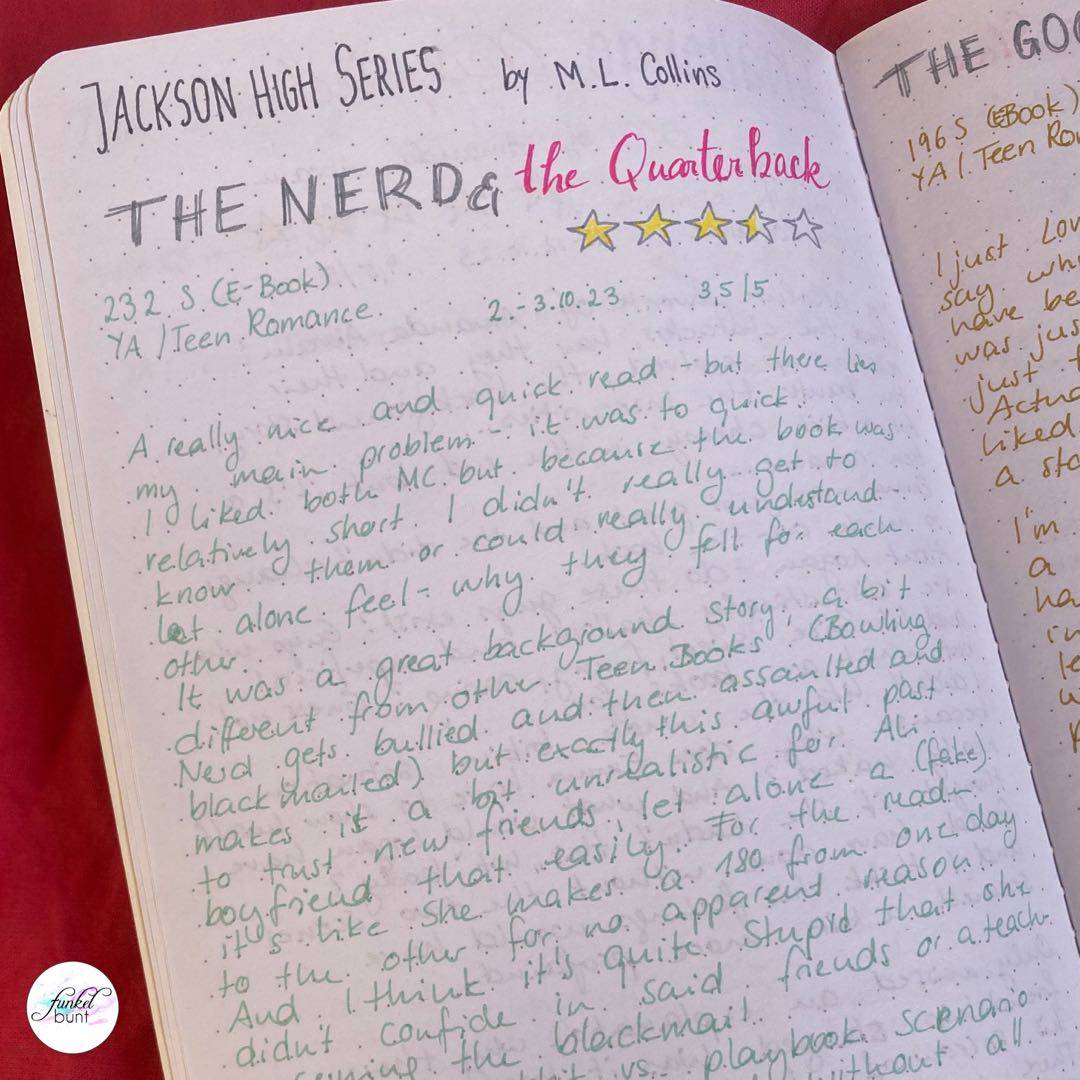 JACKSON HIGH SERIES by M. L. Collins
THE NERD & the Quarterback
232 S (E-Book)
YA / Teen Romance. 2.-3.10.23 3,5/5
A really nice and quick read - but there lies
my main problem - it was to quick.
I liked both MC but because the book was
relatively short I didn't really get to
know them or could really understand -
let alone feel - why they fell for each
other.
It was a great background story, a bit
different from other Teen Books (Bowling
Nerd gets bullied and then assaulted and
blackmailed) but exactly this awful past
makes it a bit unrealistic for Ali
to trust new friends, let alone a (fake)
boyfriend that easily. For the read-
it's like she makes a 180 from one day
to the other for no apparent reason.
And I think it's quite stupid that she
didn't confide in said friends or a teach-
the blackmail.
vs. playbook scenario
without all
THE GOO
196 S (EBook)
YA / Teen Ro
I just lov
say wh
have be
was jus
just
Actua
liked
a sto
I'm
a
ha
in
le
funkel
bunt